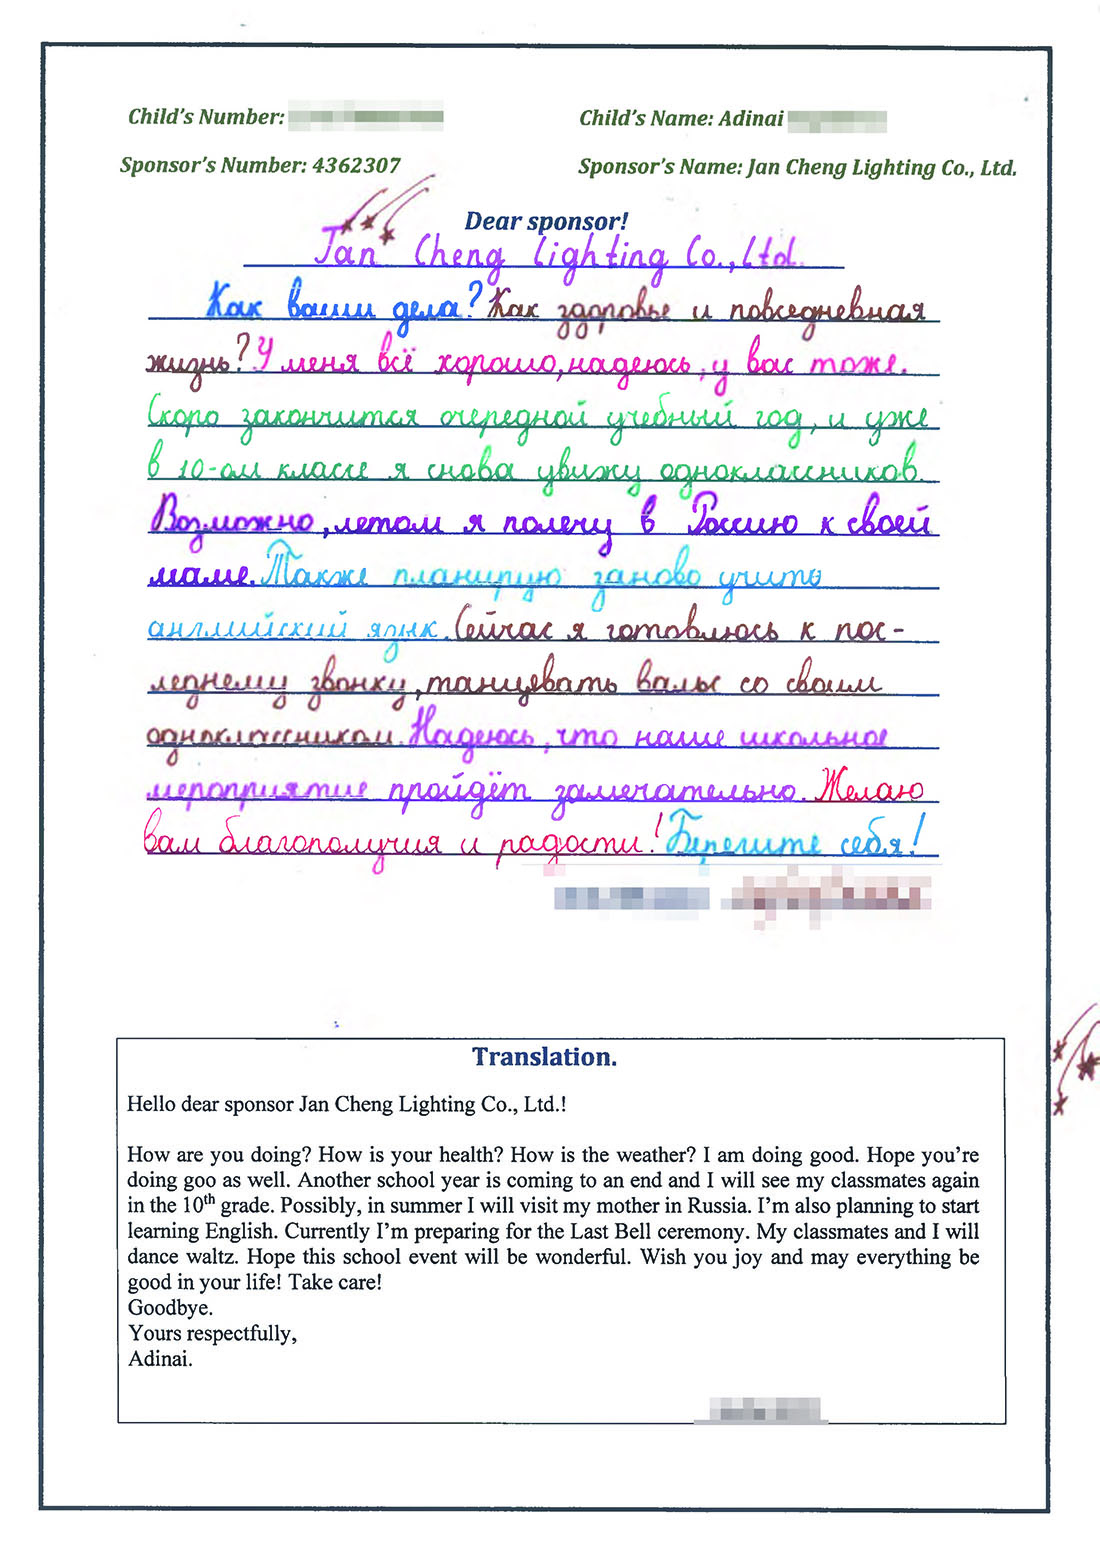 Child's Number:
Child's Name: Adinai
Sponsor's Number: 4362307
Sponsor's Name: Jan Cheng Lighting Co., Ltd.
Dear sponsor!
Jan Cheng Lighting Co., Ltd.
Как ваши дела? Как здоровье и повседневная
жизнь? У меня всё хорошо, надеюсь, у вас тоже.
Скоро закончится очередной учебный год, и уже
в 10-ом классе я снова увижу одноклассников.
Возможно, летом я полечу в Россию к своей
маме. Также планирую заново учить
английский язык. Сейчас я готовлюсь к пос-
леднему звонку, танцевать вальс со своим
одноклассником. Надеюсь, что наше школьное
мероприятие пройдёт замечательно. Желаю
вам благополучия и радости! Берегите себя!
Translation.
Hello dear sponsor Jan Cheng Lighting Co., Ltd.!
How are you doing? How is your health? How is the weather? I am doing good. Hope you're
doing goo as well. Another school year is coming to an end and I will see my classmates again
in the 10th grade. Possibly, in summer I will visit my mother in Russia. I'm also planning to start
learning English. Currently I'm preparing for the Last Bell ceremony. My classmates and I will
dance waltz. Hope this school event will be wonderful. Wish you joy and may everything be
good in your life! Take care!
Goodbye.
Yours respectfully,
Adinai.